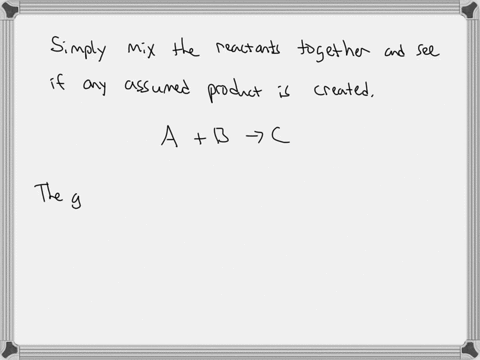 Simply mix the reactants together and see
if any assumed product is created.
A + B → C
The g